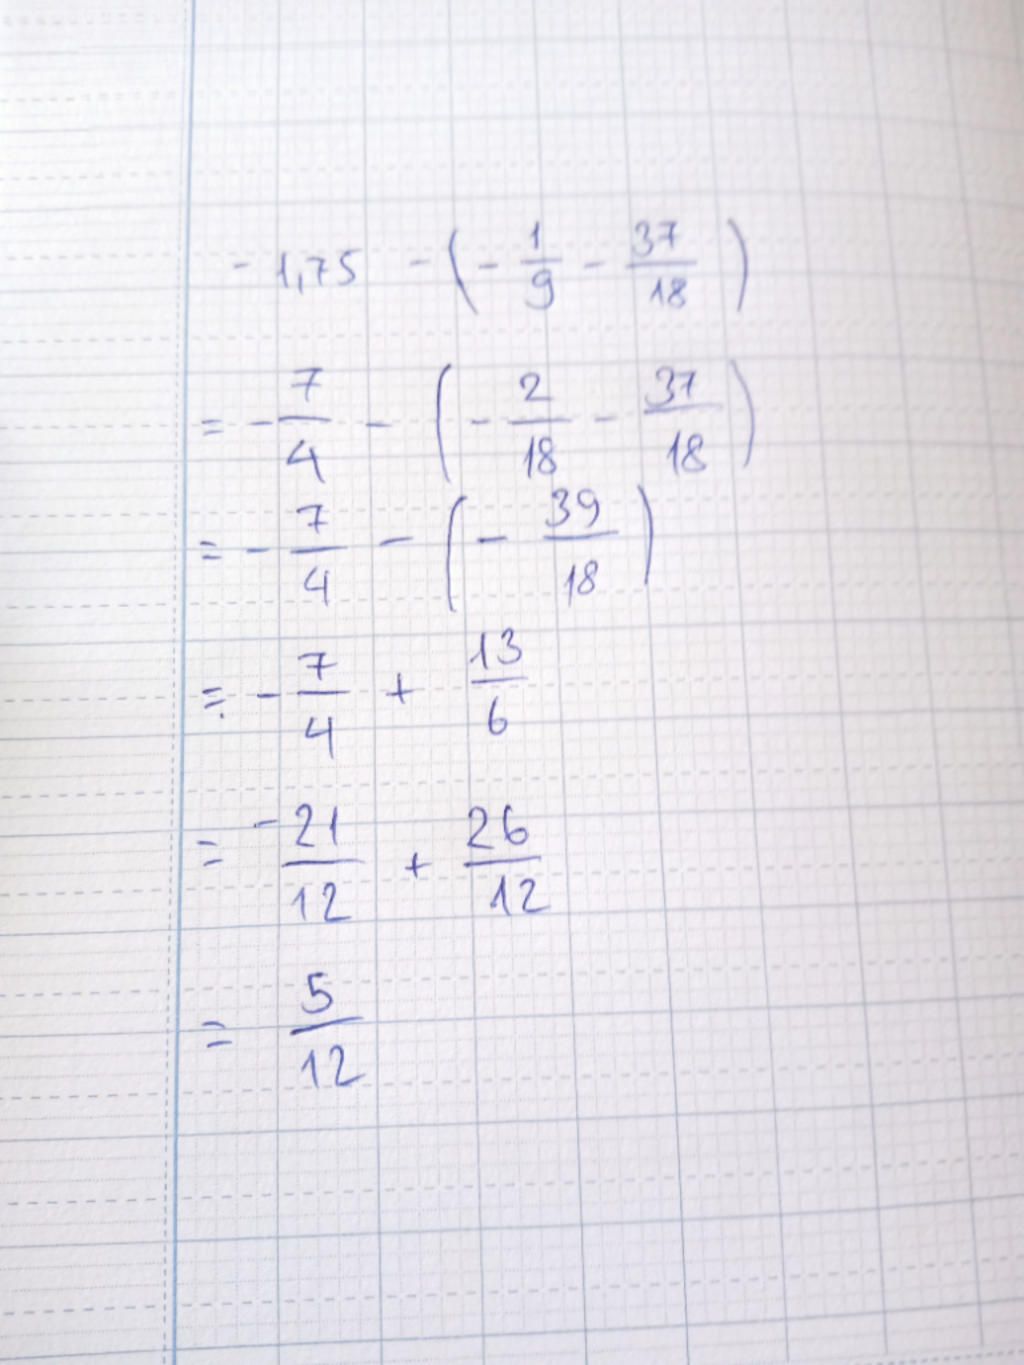 - 1,75 - ( - 1/9 - 37/18 )
= - 7/4 - ( - 2/18 - 37/18 )
= - 7/4 - ( - 39/18 )
= - 7/4 + 13/6
= -21/12 + 26/12
= 5/12